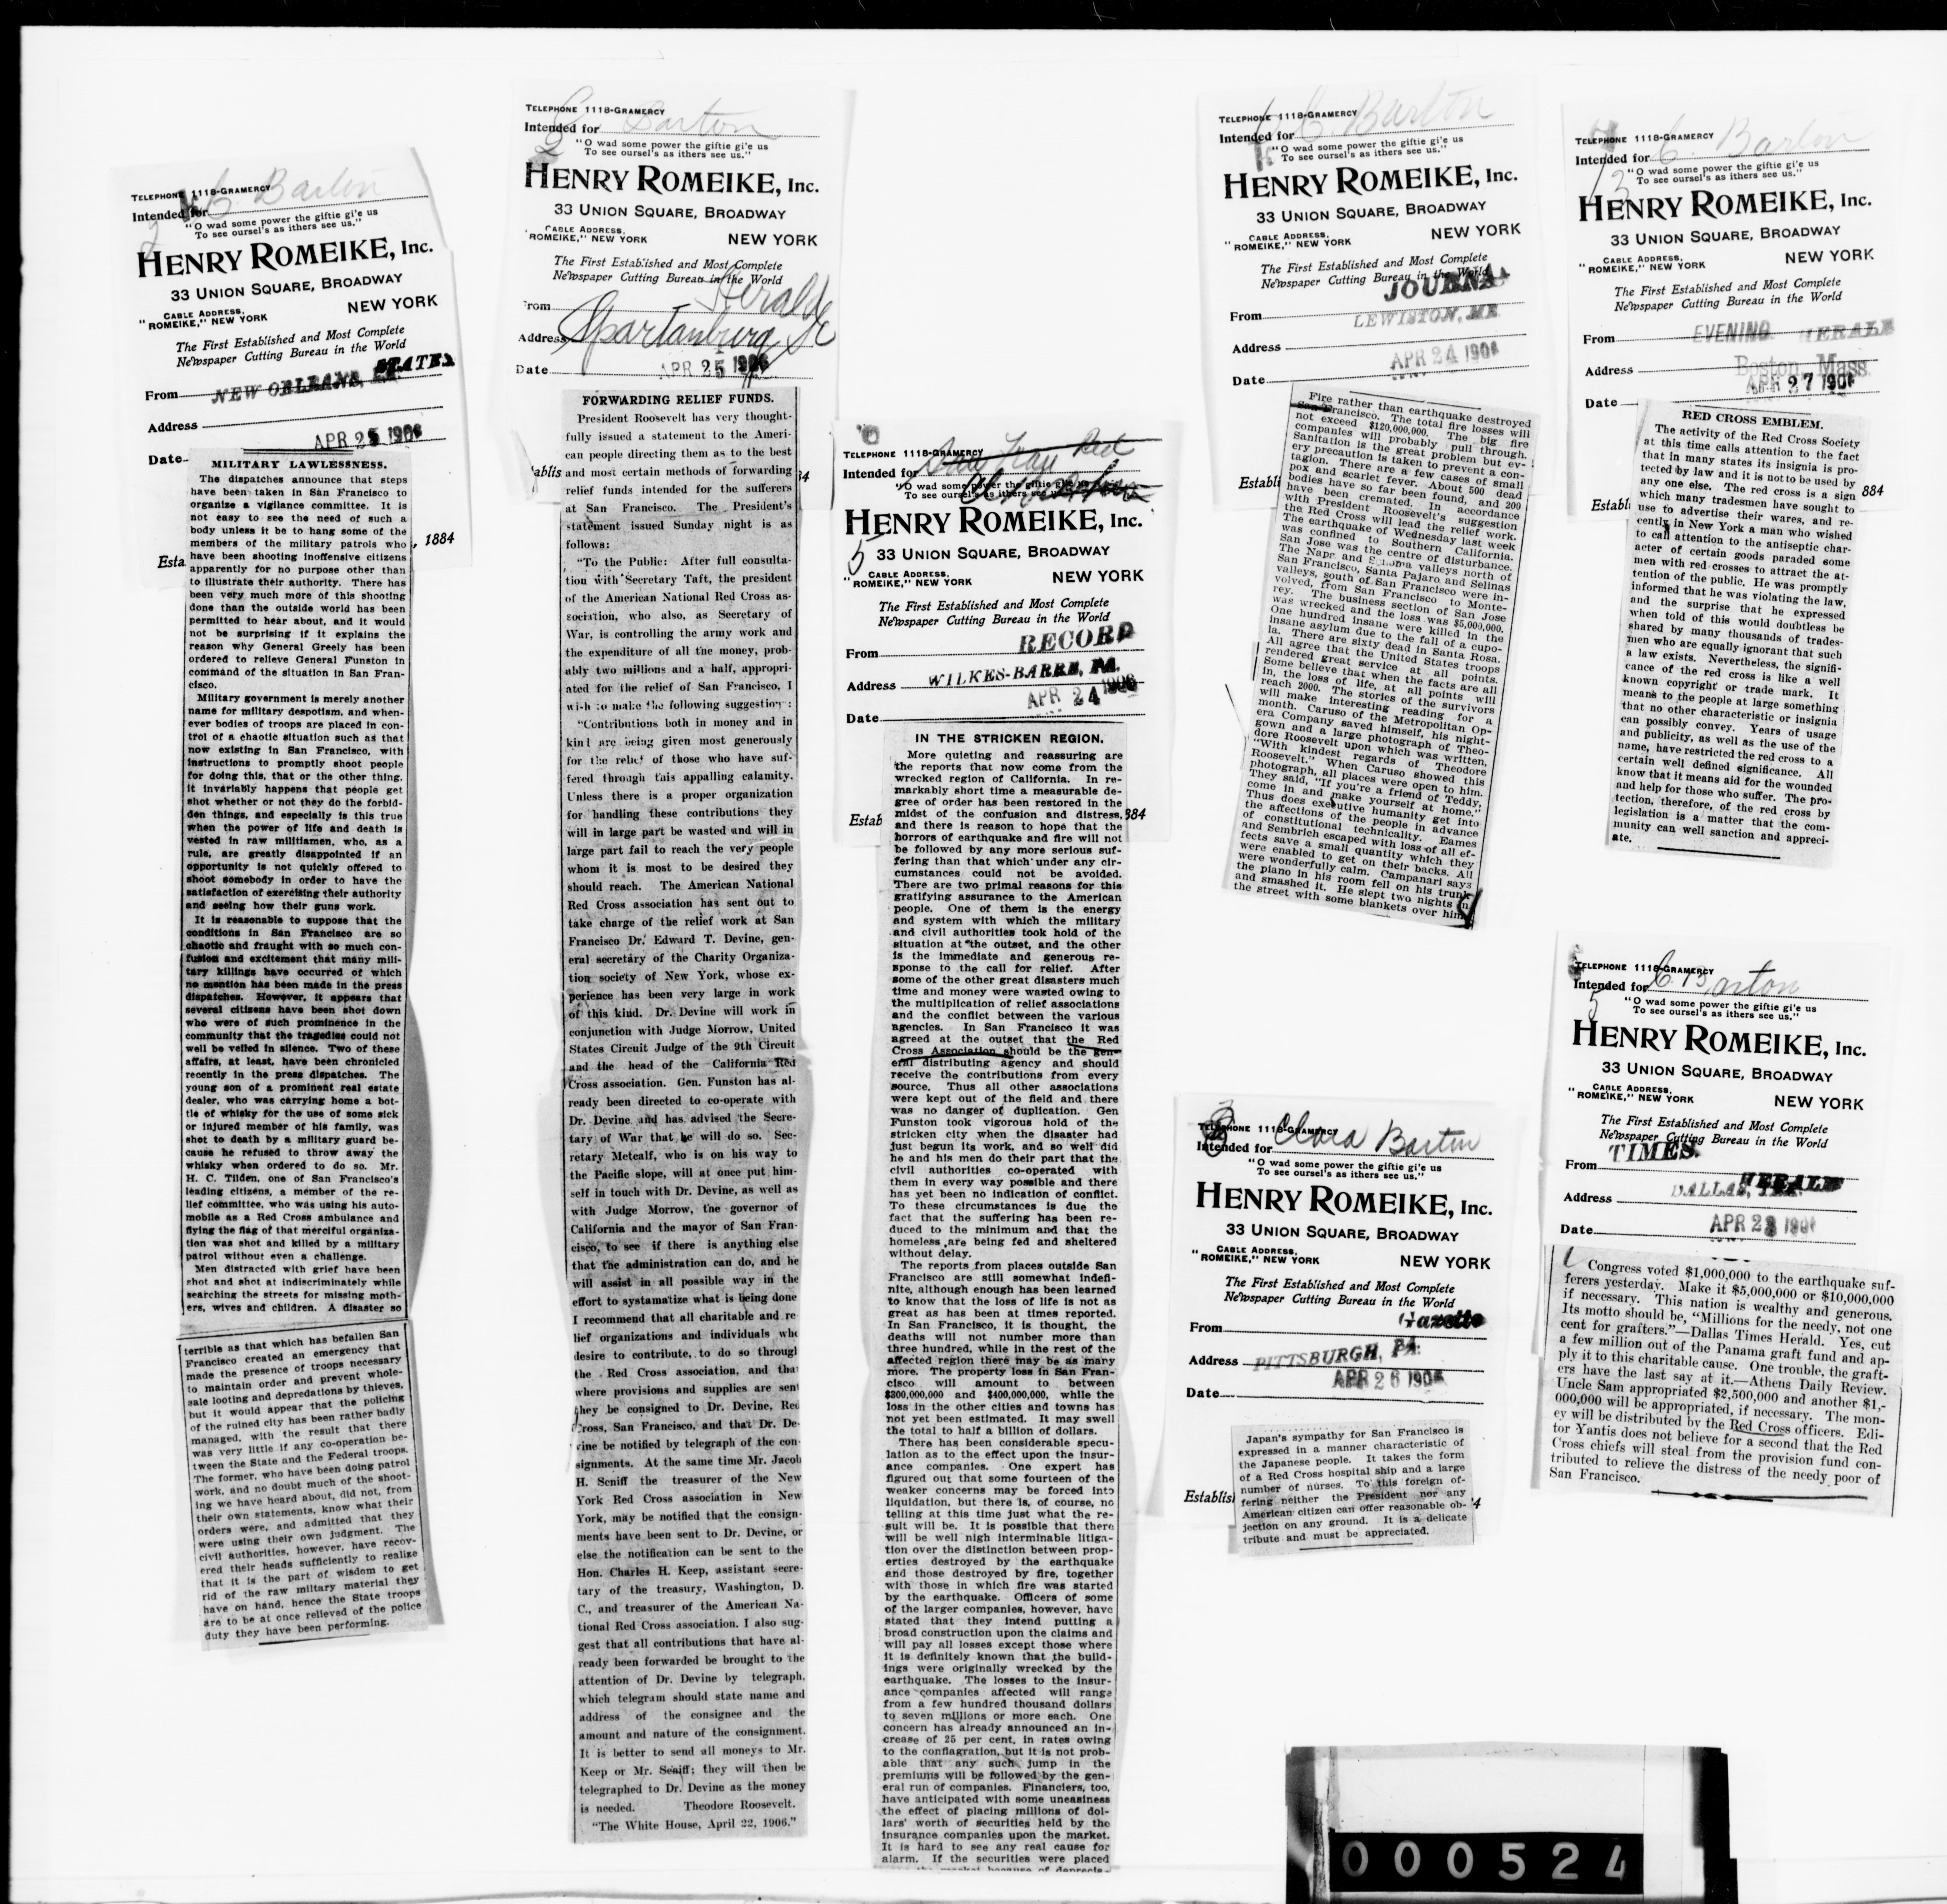 C. Barton
TELEPHONE 1118-GRAMERCY
Intended for
"O wad some power the giftie gi'e us
To see oursel's as ithers see us."
HENRY ROMEIKE, Inc.
33 UNION SQUARE, BROADWAY
CABLE ADDRESS,
"ROMEIKE," NEW YORK
NEW YORK
The First Established and Most Complete
Newspaper Cutting Bureau in the World
STATES
From NEW ORLEANS, LA.
Address
APR 25 1906
Date
MILITARY LAWLESSNESS.
The dispatches announce that steps
have been taken in San Francisco to
organize a vigilance committee. It is
not easy to see the need of such a
body unless it be to hang some of the
members of the military patrols who
have been shooting inoffensive citizens
apparently for no purpose other than
to illustrate their authority. There has
been very much more of this shooting
done than the outside world has been
permitted to hear about, and it would
not be surprising if it explains the
reason why General Greely has been
ordered to relieve General Funston in
command of the situation in San Fran-
cisco.
Military government is merely another
name for military despotism, and when-
ever bodies of troops are placed in con-
trol of a chaotic situation such as that
now existing in San Francisco, with
instructions to promptly shoot people
for doing this, that or the other thing,
it invariably happens that people get
shot whether or not they do the forbid-
den things, and especially is this true
when the power of life and death is
vested in raw militiamen, who, as a
rule, are greatly disappointed if an
opportunity is not quickly offered to
shoot somebody in order to have the
satisfaction of exercising their authority
and seeing how their guns work.
It is reasonable to suppose that the
conditions in San Francisco are so
chaotic and fraught with so much con-
fusion and excitement that many mili-
tary killings have occurred of which
no mention has been made in the press
dispatches. However, it appears that
several citizens have been shot down
who were of such prominence in the
community that the tragedies could not
well be veiled in silence. Two of these
affairs, at least, have been chronicled
recently in the press dispatches. The
young son of a prominent real estate
dealer, who was carrying home a bot-
tle of whisky for the use of some sick
or injured member of his family, was
shot to death by a military guard be-
cause he refused to throw away the
whisky when ordered to do so. Mr.
H. C. Tilden, one of San Francisco's
leading citizens, a member of the re-
lief committee, who was using his auto-
mobile as a Red Cross ambulance and
flying the flag of that merciful organiza-
tion was shot and killed by a military
patrol without even a challenge.
Men distracted with grief have been
shot and shot at indiscriminately while
searching the streets for missing moth-
ers, wives and children. A disaster so
terrible as that which has befallen San
Francisco created an emergency that
made the presence of troops necessary
to maintain order and prevent whole-
sale looting and depredations by thieves,
but it would appear that the policing
of the ruined city has been rather badly
managed, with the result that there
was very little if any co-operation be-
tween the State and the Federal troops.
The former, who have been doing patrol
work, and no doubt much of the shoot-
ing we have heard about, did not, from
their own statements, know what their
orders were, and admitted that they
were using their own judgment. The
civil authorities, however, have recov-
ered their heads sufficiently to realize
that it is the part of wisdom to get
rid of the raw military material they
have on hand, hence the State troops
are to be at once relieved of the police
duty they have been performing.
Esta
, 1884
TELEPHONE 1118-GRAMERCY
Intended for Barton
"O wad some power the giftie gi'e us
To see oursel's as ithers see us."
HENRY ROMEIKE, Inc.
33 UNION SQUARE, BROADWAY
CABLE ADDRESS,
"ROMEIKE," NEW YORK
NEW YORK
The First Established and Most Complete
Newspaper Cutting Bureau in the World
From Herald
Address Spartanburg SC
Date APR 25 1906
FORWARDING RELIEF FUNDS.
President Roosevelt has very thought-
fully issued a statement to the Ameri-
can people directing them as to the best
and most certain methods of forwarding
relief funds intended for the sufferers
at San Francisco. The President's
statement issued Sunday night is as
follows:
"To the Public: After full consulta-
tion with Secretary Taft, the president
of the American National Red Cross as-
sociation, who also, as Secretary of
War, is controlling the army work and
the expenditure of all the money, prob-
ably two millions and a half, appropri-
ated for the relief of San Francisco, I
wish to make the following suggestion:
"Contributions both in money and in
kind are being given most generously
for the relief of those who have suf-
fered through this appalling calamity.
Unless there is a proper organization
for handling these contributions they
will in large part be wasted and will in
large part fail to reach the very people
whom it is most to be desired they
should reach. The American National
Red Cross association has sent out to
take charge of the relief work at San
Francisco Dr. Edward T. Devine, gen-
eral secretary of the Charity Organiza-
tion society of New York, whose ex-
perience has been very large in work
of this kind. Dr. Devine will work in
conjunction with Judge Morrow, United
States Circuit Judge of the 9th Circuit
and the head of the California Red
Cross association. Gen. Funston has al-
ready been directed to co-operate with
Dr. Devine and has advised the Secre-
tary of War that he will do so. Sec-
retary Metcalf, who is on his way to
the Pacific slope, will at once put him-
self in touch with Dr. Devine, as well as
with Judge Morrow, the governor of
California and the mayor of San Fran-
cisco, to see if there is anything else
that the administration can do, and he
will assist in all possible way in the
effort to systamatize what is being done
I recommend that all charitable and re
lief organizations and individuals who
desire to contribute, to do so through
the Red Cross association, and that
where provisions and supplies are sent
they be consigned to Dr. Devine, Red
Cross, San Francisco, and that Dr. De-
vine be notified by telegraph of the con-
signments. At the same time Mr. Jacob
H. Sceniff the treasurer of the New
York Red Cross association in New
York, may be notified that the consign-
ments have been sent to Dr. Devine, or
else the notification can be sent to the
Hon. Charles H. Keep, assistant secre-
tary of the treasury, Washington, D.
C., and treasurer of the American Na-
tional Red Cross association. I also sug-
gest that all contributions that have al-
ready been forwarded be brought to the
attention of Dr. Devine by telegraph,
which telegram should state name and
address of the consignee and the
amount and nature of the consignment.
It is better to send all moneys to Mr.
Keep or Mr. Seaiff; they will then be
telegraphed to Dr. Devine as the money
is needed. Theodore Roosevelt.
"The White House, April 22, 1906."
ablis
TELEPHONE 1118-GRAMERCY
Intended for
"O wad some power the giftie gi'e us
To see oursel's as ithers see us."
HENRY ROMEIKE, Inc.
5
33 UNION SQUARE, BROADWAY
CABLE ADDRESS,
"ROMEIKE," NEW YORK
NEW YORK
The First Established and Most Complete
Newspaper Cutting Bureau in the World
From RECORD
Address WILKES-BARRE, PA.
APR 24 1906
Date
IN THE STRICKEN REGION.
More quieting and reassuring are
the reports that now come from the
wrecked region of California. In re-
markably short time a measurable de-
gree of order has been restored in the
midst of the confusion and distress,
and there is reason to hope that the
horrors of earthquake and fire will not
be followed by any more serious suf-
fering than that which under any cir-
cumstances could not be avoided.
There are two primal reasons for this
gratifying assurance to the American
people. One of them is the energy
and system with which the military
and civil authorities took hold of the
situation at the outset, and the other
is the immediate and generous re-
sponse to the call for relief. After
some of the other great disasters much
time and money were wasted owing to
the multiplication of relief associations
and the conflict between the various
agencies. In San Francisco it was
agreed at the outset that the Red
Cross Association should be the gen-
eral distributing agency and should
receive the contributions from every
source. Thus all other associations
were kept out of the field and there
was no danger of duplication. Gen
Funston took vigorous hold of the
stricken city when the disaster had
just begun its work, and so well did
he and his men do their part that the
civil authorities co-operated with
them in every way possible and there
has yet been no indication of conflict.
To these circumstances is due the
fact that the suffering has been re-
duced to the minimum and that the
homeless are being fed and sheltered
without delay.
The reports from places outside San
Francisco are still somewhat indefi-
nite, although enough has been learned
to know that the loss of life is not as
great as has been at times reported.
In San Francisco, it is thought, the
deaths will not number more than
three hundred, while in the rest of the
affected region there may be as many
more. The property loss in San Fran-
cisco will amount to between
$300,000,000 and $400,000,000, while the
loss in the other cities and towns has
not yet been estimated. It may swell
the total to half a billion of dollars.
There has been considerable specu-
lation as to the effect upon the insur-
ance companies. One expert has
figured out that some fourteen of the
weaker concerns may be forced into
liquidation, but there is, of course, no
telling at this time just what the re-
sult will be. It is possible that there
will be well nigh interminable litiga-
tion over the distinction between prop-
erties destroyed by the earthquake
and those destroyed by fire, together
with those in which fire was started
by the earthquake. Officers of some
of the larger companies, however, have
stated that they intend putting a
broad construction upon the claims and
will pay all losses except those where
it is definitely known that the build-
ings were originally wrecked by the
earthquake. The losses to the insur-
ance companies affected will range
from a few hundred thousand dollars
to seven millions or more each. One
concern has already announced an in-
crease of 25 per cent. in rates owing
to the conflagration, but it is not prob-
able that any such jump in the
premiums will be followed by the gen-
eral run of companies. Financiers, too,
have anticipated with some uneasiness
the effect of placing millions of dol-
lars' worth of securities held by the
insurance companies upon the market.
It is hard to see any real cause for
alarm. If the securities were placed
Estab
884
C. Barton
TELEPHONE 1118-GRAMERCY
Intended for
"O wad some power the giftie gi'e us
To see oursel's as ithers see us."
HENRY ROMEIKE, Inc.
33 UNION SQUARE, BROADWAY
CABLE ADDRESS,
"ROMEIKE," NEW YORK
NEW YORK
The First Established and Most Complete
Newspaper Cutting Bureau in the World
JOURNA
From LEWISTON, ME
Address
APR 24 1906
Date
Fire rather than earthquake destroyed
San Francisco. The total fire losses will
not exceed $120,000,000. The big fire
companies will probably pull through.
Sanitation is the great problem but ev-
ery precaution is taken to prevent a con-
tagion. There are a few cases of small
pox and scarlet fever. About 500 dead
bodies have so far been found, and 200
have been cremated. In accordance
with President Roosevelt's suggestion
the Red Cross will lead the relief work.
The earthquake of Wednesday last week
was confined to Southern California.
San Jose was the centre of disturbance.
The Napa and Sonoma valleys north of
San Francisco, Santa Pajaro and Selinas
valleys, south of San Francisco were in-
volved, from San Francisco to Monte-
rey. The business section of San Jose
was wrecked and the loss was $5,000,000.
One hundred insane were killed in the
insane asylum due to the fall of a cupo-
la. There are sixty dead in Santa Rosa.
All agree that the United States troops
rendered great service at all points.
Some believe that when the facts are all
in, the loss of life, at all points will
reach 2000. The stories of the survivors
will make interesting reading for a
month. Caruso of the Metropolitan Op-
era Company saved himself, his night-
gown and a large photograph of Theo-
dore Roosevelt upon which was written,
"With kindest regards of Theodore
Roosevelt." When Caruso showed this
photograph, all places were open to him.
They said, "If you're a friend of Teddy,
come in and make yourself at home."
Thus does executive humanity get into
the affections of the people in advance
of constitutional technicality. Eames
and Sembrich escaped with loss of all ef-
fects save a small quantity which they
were enabled to get on their backs. All
were wonderfully calm. Campanari says
the piano in his room fell on his trunk
and smashed it. He slept two nights in
the street with some blankets over him.
Establi
Clara Barton
TELEPHONE 1118-GRAMERCY
Intended for
"O wad some power the giftie gi'e us
To see oursel's as ithers see us."
HENRY ROMEIKE, Inc.
33 UNION SQUARE, BROADWAY
CABLE ADDRESS,
"ROMEIKE," NEW YORK
NEW YORK
The First Established and Most Complete
Newspaper Cutting Bureau in the World
Gazette
From
Address PITTSBURGH, PA.
APR 26 1906
Date
Japan's sympathy for San Francisco is
expressed in a manner characteristic of
the Japanese people. It takes the form
of a Red Cross hospital ship and a large
number of nurses. To this foreign of-
fering neither the President nor any
American citizen can offer reasonable ob-
jection on any ground. It is a delicate
tribute and must be appreciated.
Establis
4
C. Barton
TELEPHONE 1118-GRAMERCY
Intended for
"O wad some power the giftie gi'e us
To see oursel's as ithers see us."
HENRY ROMEIKE, Inc.
33 UNION SQUARE, BROADWAY
CABLE ADDRESS,
"ROMEIKE," NEW YORK
NEW YORK
The First Established and Most Complete
Newspaper Cutting Bureau in the World
From EVENING HERALD
Address Boston Mass
APR 27 1906
Date
RED CROSS EMBLEM.
The activity of the Red Cross Society
at this time calls attention to the fact
that in many states its insignia is pro-
tected by law and it is not to be used by
any one else. The red cross is a sign
which many tradesmen have sought to
use to advertise their wares, and re-
cently in New York a man who wished
to call attention to the antiseptic char-
acter of certain goods paraded some
men with red crosses to attract the at-
tention of the public. He was promptly
informed that he was violating the law,
and the surprise that he expressed
when told of this would doubtless be
shared by many thousands of trades-
men who are equally ignorant that such
a law exists. Nevertheless, the signifi-
cance of the red cross is like a well
known copyright or trade mark. It
means to the people at large something
that no other characteristic or insignia
can possibly convey. Years of usage
and publicity, as well as the use of the
name, have restricted the red cross to a
certain well defined significance. All
know that it means aid for the wounded
and help for those who suffer. The pro-
tection, therefore, of the red cross by
legislation is a matter that the com-
munity can well sanction and appreci-
ate.
Establ
884
C Barton
TELEPHONE 1118-GRAMERCY
Intended for
5
"O wad some power the giftie gi'e us
To see oursel's as ithers see us."
HENRY ROMEIKE, Inc.
33 UNION SQUARE, BROADWAY
CABLE ADDRESS,
"ROMEIKE," NEW YORK
NEW YORK
The First Established and Most Complete
Newspaper Cutting Bureau in the World
TIMES
From HERALD
Address DALLAS, TEX.
APR 28 1906
Date
Congress voted $1,000,000 to the earthquake suf-
ferers yesterday. Make it $5,000,000 or $10,000,000
if necessary. This nation is wealthy and generous.
Its motto should be, "Millions for the needy, not one
cent for grafters."—Dallas Times Herald. Yes, cut
a few million out of the Panama graft fund and ap-
ply it to this charitable cause. One trouble, the graft-
ers have the last say at it.—Athens Daily Review.
Uncle Sam appropriated $2,500,000 and another $1,-
000,000 will be appropriated, if necessary. The mon-
ey will be distributed by the Red Cross officers. Edi-
tor Yantis does not believe for a second that the Red
Cross chiefs will steal from the provision fund con-
tributed to relieve the distress of the needy poor of
San Francisco.
000524